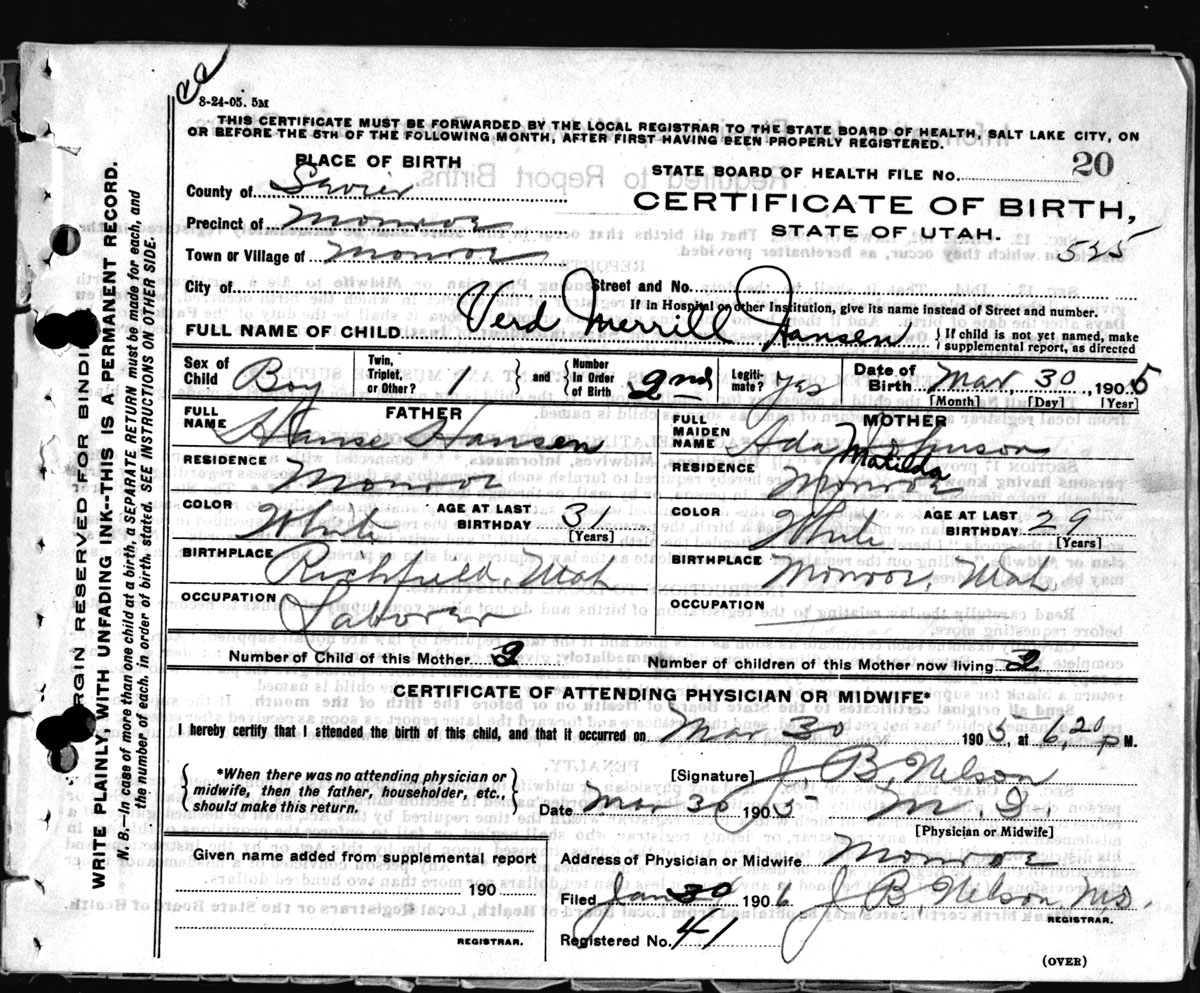 8-24-05. 5M
THIS CERTIFICATE MUST BE FORWARDED BY THE LOCAL REGISTRAR TO THE STATE BOARD OF HEALTH, SALT LAKE CITY, ON
OR BEFORE THE 5TH OF THE FOLLOWING MONTH, AFTER FIRST HAVING BEEN PROPERLY REGISTERED.
PLACE OF BIRTH
STATE BOARD OF HEALTH FILE No. 20
County of Sevier
CERTIFICATE OF BIRTH,
Precinct of Monroe
STATE OF UTAH.
525
Town or Village of Monroe
City of
Street and No.
If in Hospital or other Institution, give its name instead of Street and number.
FULL NAME OF CHILD Verd Merrill Hansen { If child is not yet named, make
supplemental report, as directed
Sex of Child Boy
Twin, Triplet, or Other? 1 } and { Number In Order of Birth 2nd
Legiti-mate? Yes
Date of Birth Mar 30, 1905
[Month] [Day] [Year]
FATHER
FULL NAME Hanse Hansen
MOTHER
FULL MAIDEN NAME Ada Matilda
RESIDENCE Monroe
RESIDENCE Monroe
COLOR White AGE AT LAST BIRTHDAY 31 [Years]
COLOR White AGE AT LAST BIRTHDAY 29 [Years]
BIRTHPLACE Richfield, Utah
BIRTHPLACE Monroe, Utah
OCCUPATION Laborer
OCCUPATION
Number of Child of this Mother 2
Number of children of this Mother now living 2
CERTIFICATE OF ATTENDING PHYSICIAN OR MIDWIFE*
I hereby certify that I attended the birth of this child, and that it occurred on Mar 30 1905, at 6,20 P M.
{ *When there was no attending physician or
midwife, then the father, householder, etc.,
should make this return. }
[Signature] J. B. Nelson
Date Mar 30 1905 M. D.
[Physician or Midwife]
Given name added from supplemental report
190
REGISTRAR.
Address of Physician or Midwife Monroe
Filed Jan 30 1906 J B. Nelson M.D.
REGISTRAR.
Registered No. 41
(OVER)
MARGIN RESERVED FOR BINDING
WRITE PLAINLY, WITH UNFADING INK--THIS IS A PERMANENT RECORD.
N. B.—In case of more than one child at a birth, a SEPARATE RETURN must be made for each, and
the number of each, in order of birth, stated. SEE INSTRUCTIONS ON OTHER SIDE.